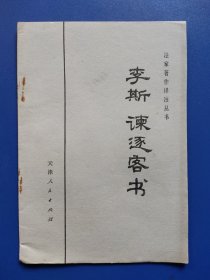 法家著作译注丛书
李斯 谏逐客书
天津人民出版社